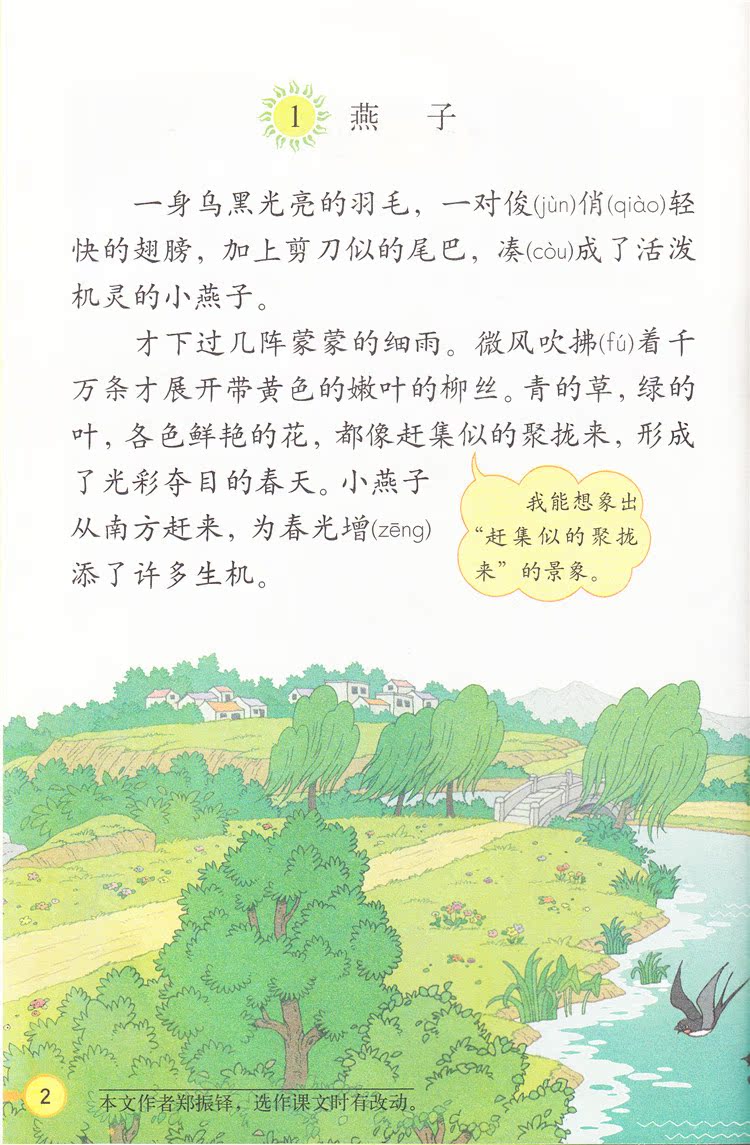 1 燕 子
一身乌黑光亮的羽毛，一对俊(jùn)俏(qiào)轻
快的翅膀，加上剪刀似的尾巴，凑(còu)成了活泼
机灵的小燕子。
才下过几阵蒙蒙的细雨。微风吹拂(fú)着千
万条才展开带黄色的嫩叶的柳丝。青的草，绿的
叶，各色鲜艳的花，都像赶集似的聚拢来，形成
了光彩夺目的春天。小燕子
从南方赶来，为春光增(zēng)
添了许多生机。
我能想象出
“赶集似的聚拢
来”的景象。
本文作者郑振铎，选作课文时有改动。
2